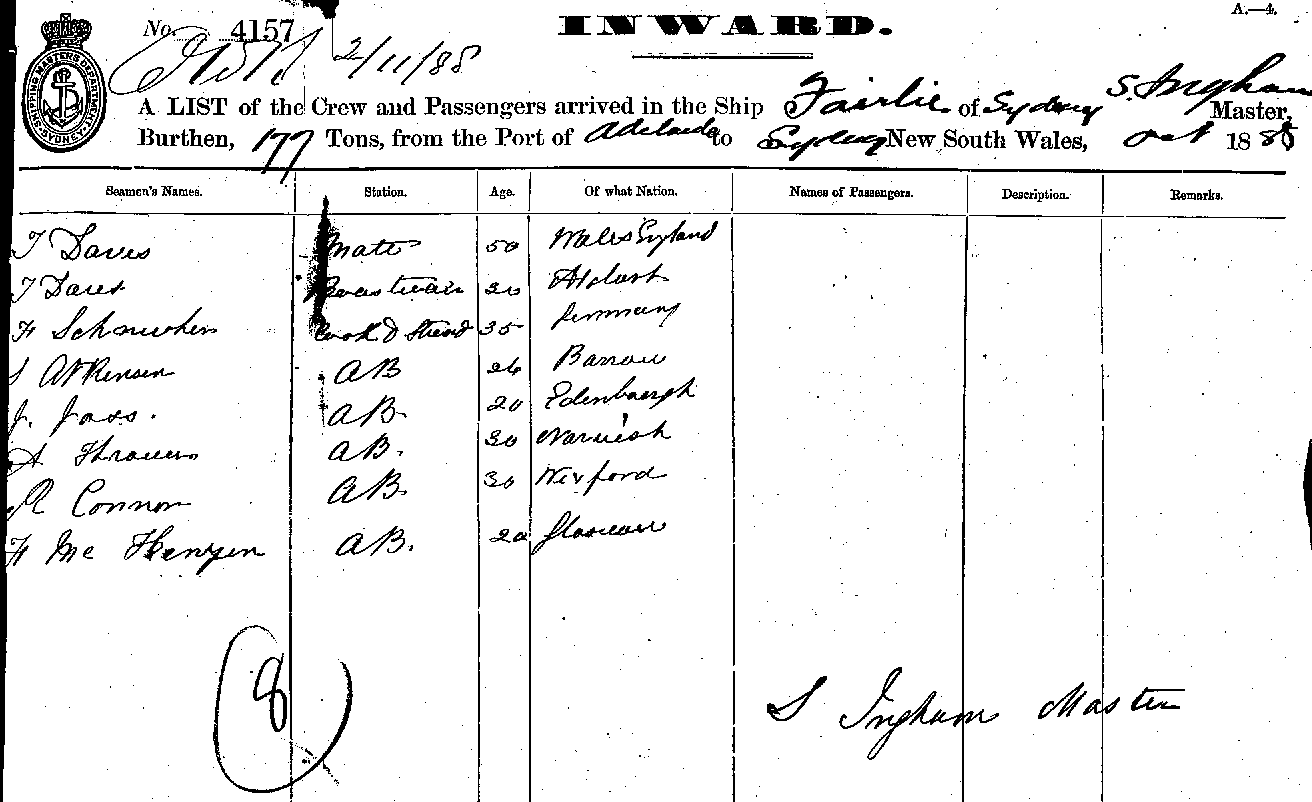 A.—4.
No. 4157
INWARD.
SHIPPING MASTERS DEPARTMENT SYDNEY
2/11/88
A LIST of the Crew and Passengers arrived in the Ship Fairlie of Sydney S. Ingham Master,
Burthen, 177 Tons, from the Port of Adelaide to Sydney New South Wales, Oct 1888
Seamen's Names. Station. Age. Of what Nation. Names of Passengers. Description. Remarks.
T Davis Mate 50 Wales England
T Boatswain 20
H Cook & Steward 35 Germany
S Atkinson AB 26 Barrow
J. AB 20 Edenbourgh
A AB. 30
R Connor AB 30 Wexford
H Mc AB. 20
8
S Ingham Master